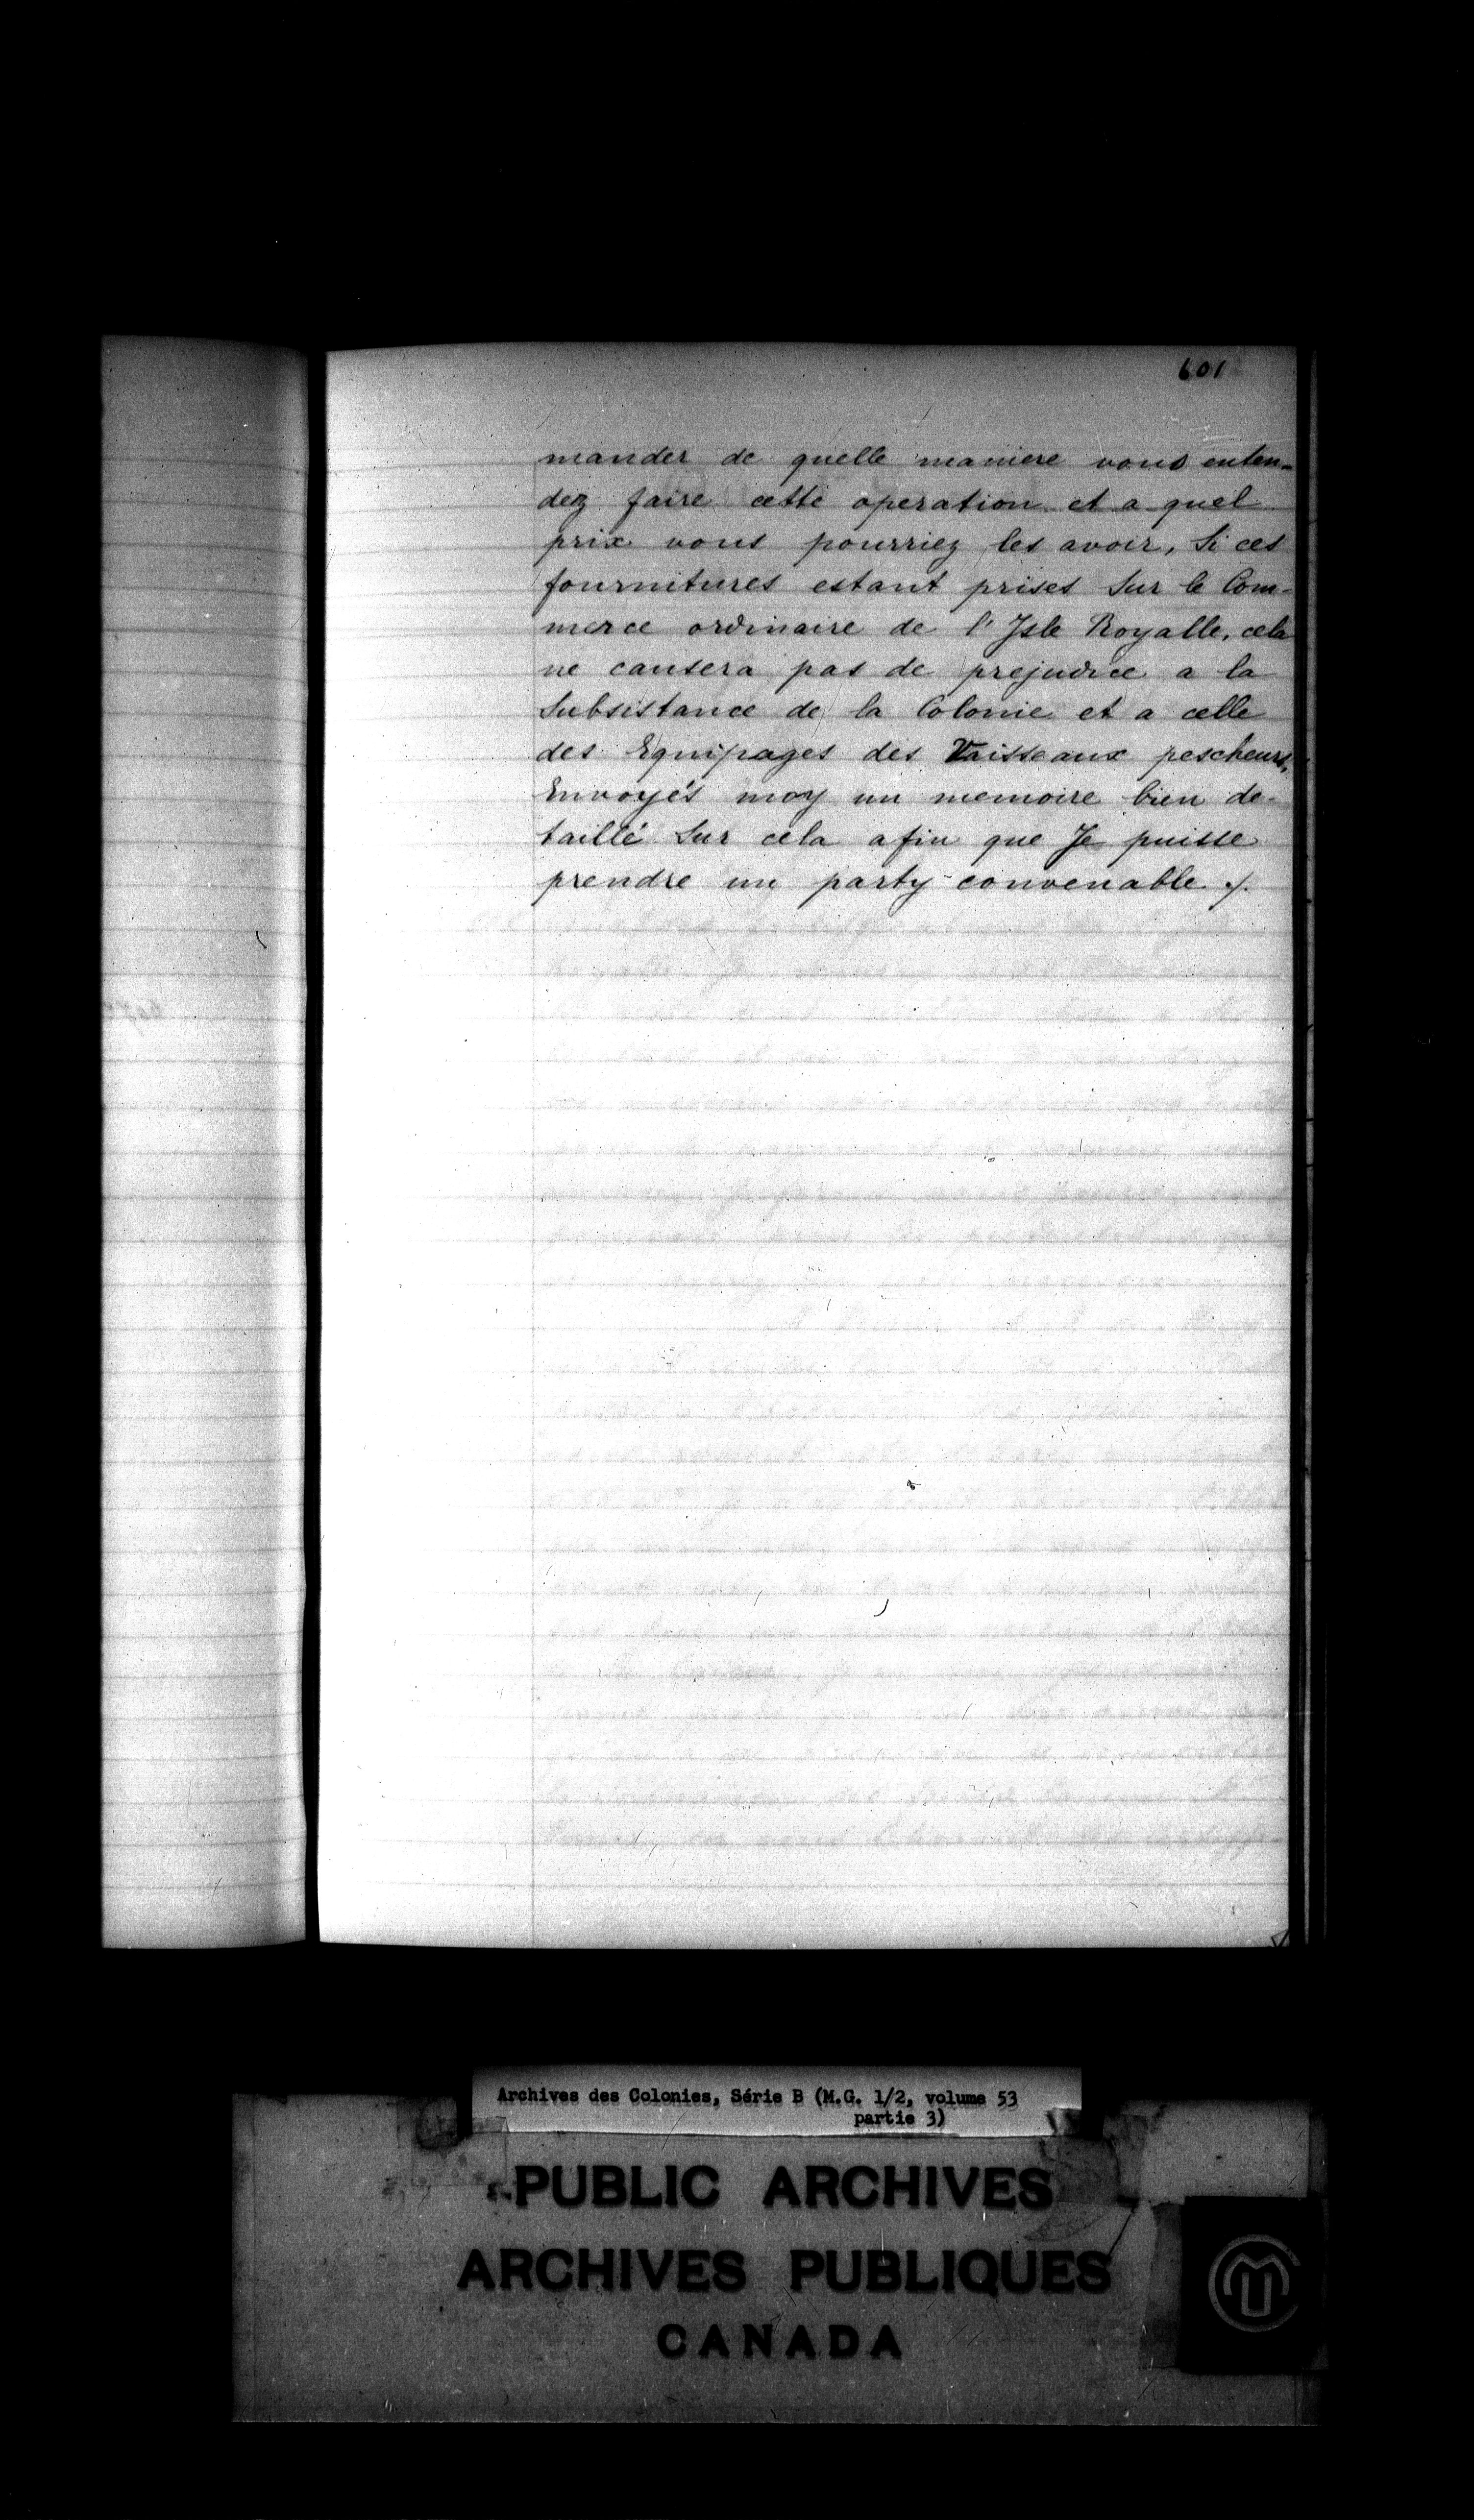 601
mander de quelle maniere vous enten-
dez faire cette operation et a quel
prix vous pourriez les avoir, Si ces
fournitures estant prises Sur le Com-
merce ordinaire de l'Isle Royalle, cela
ne causera pas de prejudice a la
Subsistance de la Colonie et a celle
des Equipages des Vaisseaux pescheurs,
Envoyés moy un memoire bien de-
taillé Sur cela afin que Je puisse
prendre un party convenable ./.
Archives des Colonies, Série B (M.G. 1/2, volume 53
partie 3)
PUBLIC ARCHIVES
ARCHIVES PUBLIQUES
CANADA